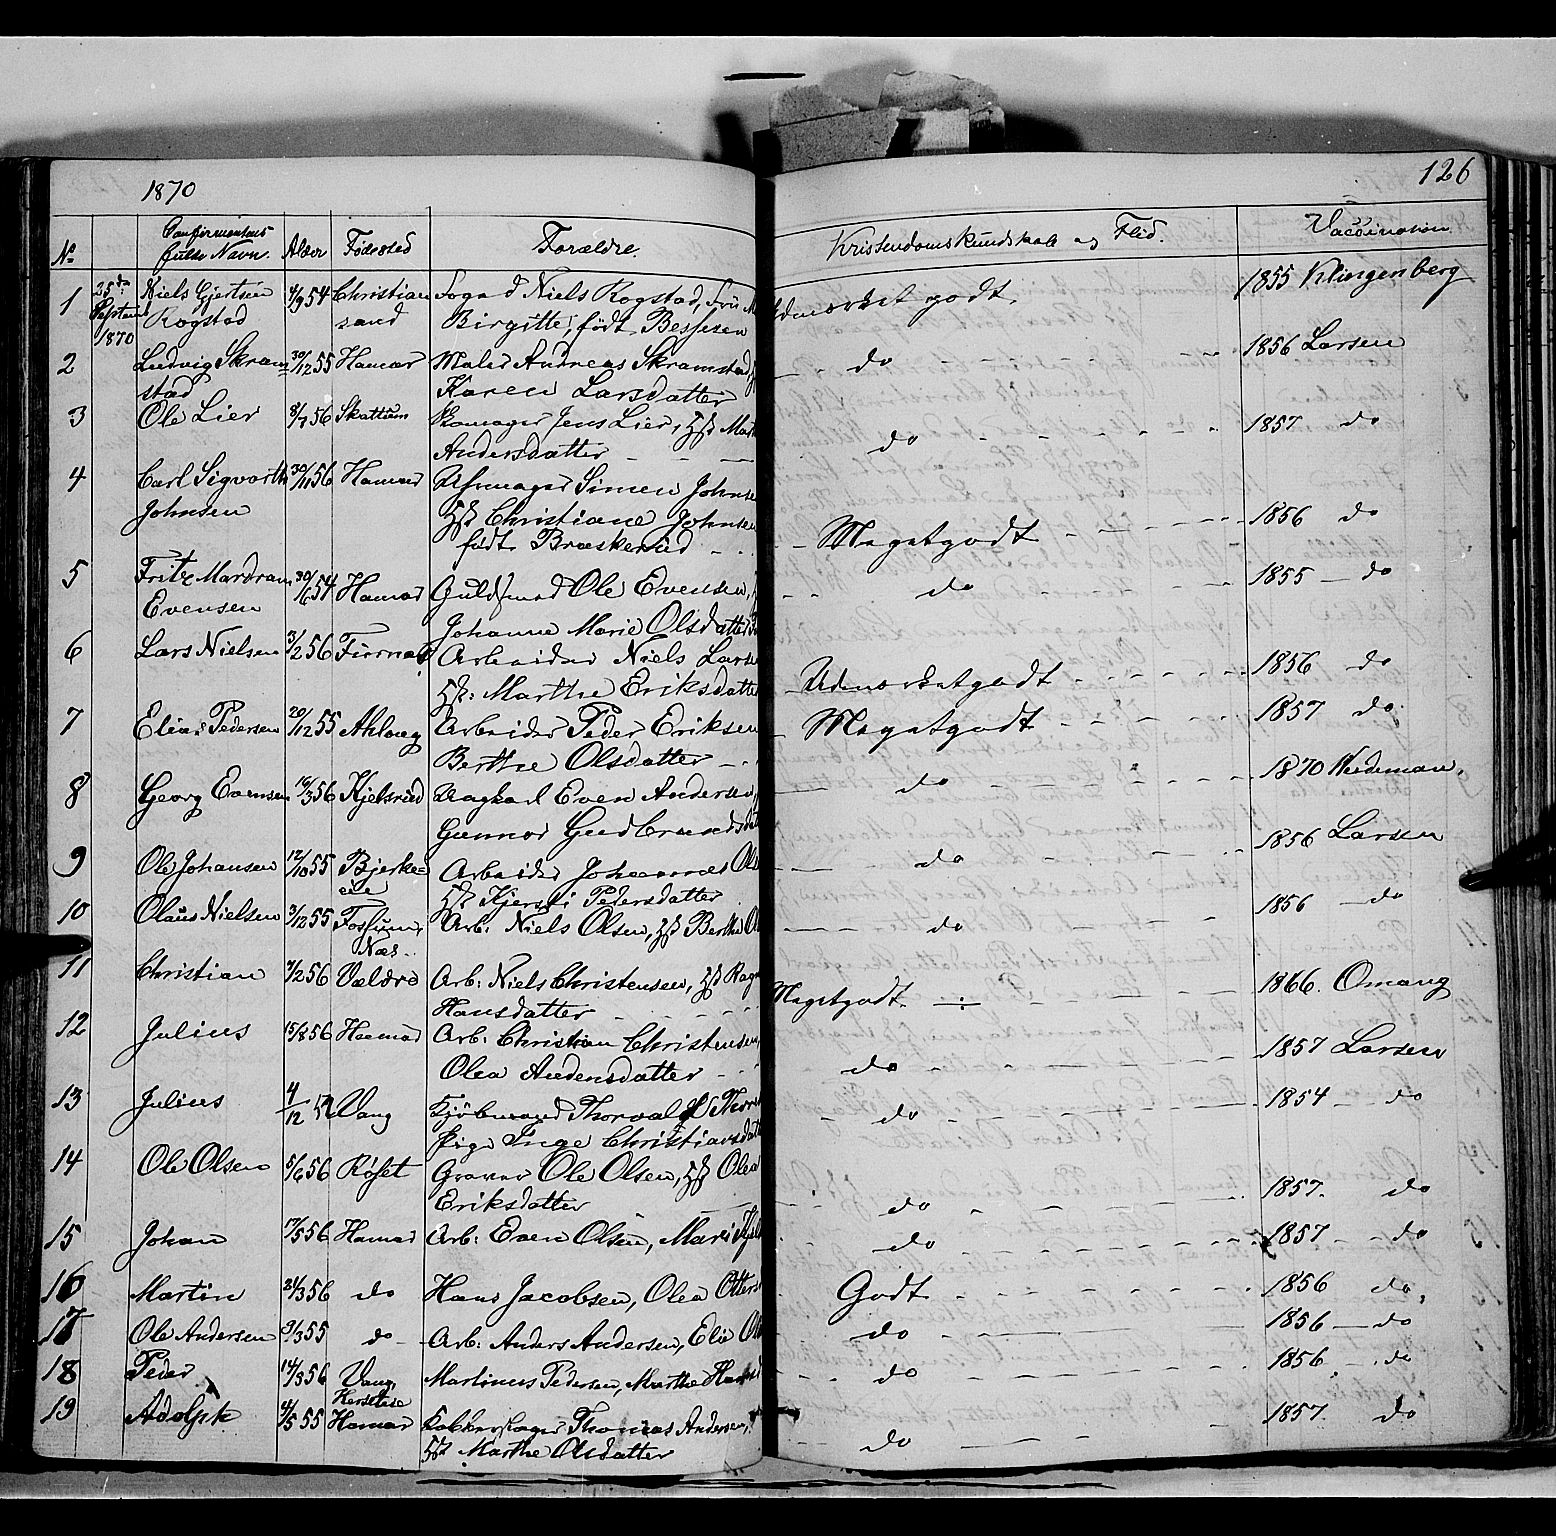 1870
126
No
Confirmantens
fulde Navn.
Alder
Fødested
Forældre.
Kristendomskundskab og Flid.
Vaccination
1 25de Niels Gjertsen 4/9 54 Christian Foged Niels Rogstad, Fru
Septemb Rogstad sand Birgitte, født Bessesen
1870
Udmærket godt. 1855 Klingenberg
2 Ludvig Skram= 30/12 55 Hamar Maler Andreas Skramstad,
stad Karen Larsdatter
do 1856 Larsen
3 Ole Lier 8/7 56 Skattum Jens Lier,
Andersdatter
do 1857 do
4 Carl Sigvarth 30/11 56 Hamar Uhrmager Simen Johnsen
Johnsen Christiane Johnsen
født Braskerud
Megetgodt 1856 do
5 Fritz Mardram 30/6 54 Hamar Guldsmed Ole Evensen,
Evensen Johanne Marie Olsdatter
do 1855 do
6 Lars Nielsen 3/2 56 Furnæs Arbeider Niels Larsen
Marthe Eriksdatter
Udmærketgodt 1856 do
7 Elias Pedersen 20/12 55 Arbeider Peder Eriksen
Berthe Olsdatter
Megetgodt 1857 do
8 Georg Evensen 16/3 56 Kjelsrud Even Andersen,
Gunnor Gudbrandsdat
do 1870 Weideman.
9 Ole Johansen 12/10 55 Bjerke= Arbeider Johannes Ols
eie Kjersti Pedersdatter
do 1856 Larsen
10 Olaus Nielsen 3/12 55 Fossum, Arb: Niels Olsen, Berthe
Næs
do 1856 do
11 Christian 7/2 56 Vældre Arb: Niels Christensen,
Hansdatter
Megetgodt 1866. Omang
12 Julius 15/8 56 Hamar Arb: Christian Christensen,
Olea Andersdatter
do 1857 Larsen
13 Julius 4/12 Vang Kjøbmand Thorvald
Pige Inge Christiansdatt
do 1854 do
14 Ole Olsen 5/6 56 Røset Graver Ole Olsen, Olea
Eriksdatter
do 1857. do
15 Johan 17/5 56 Hamar Arb: Even Olsen, Mari
do 1857 do
16 Martin 21/3 56 do Hans Jacobsen, Olea
Godt 1856 do,
17 Ole Andersen 9/3 55 do Arb: Anders Andersen, Elie
do 1856 do
18 Peder 14/3 56 Vang, Martinus Pedersen, Marthe
do 1856 do
19 Adolph 4/5 55 Hamar Thomas Andersen,
Marthe Olsdatter
do 1857. do